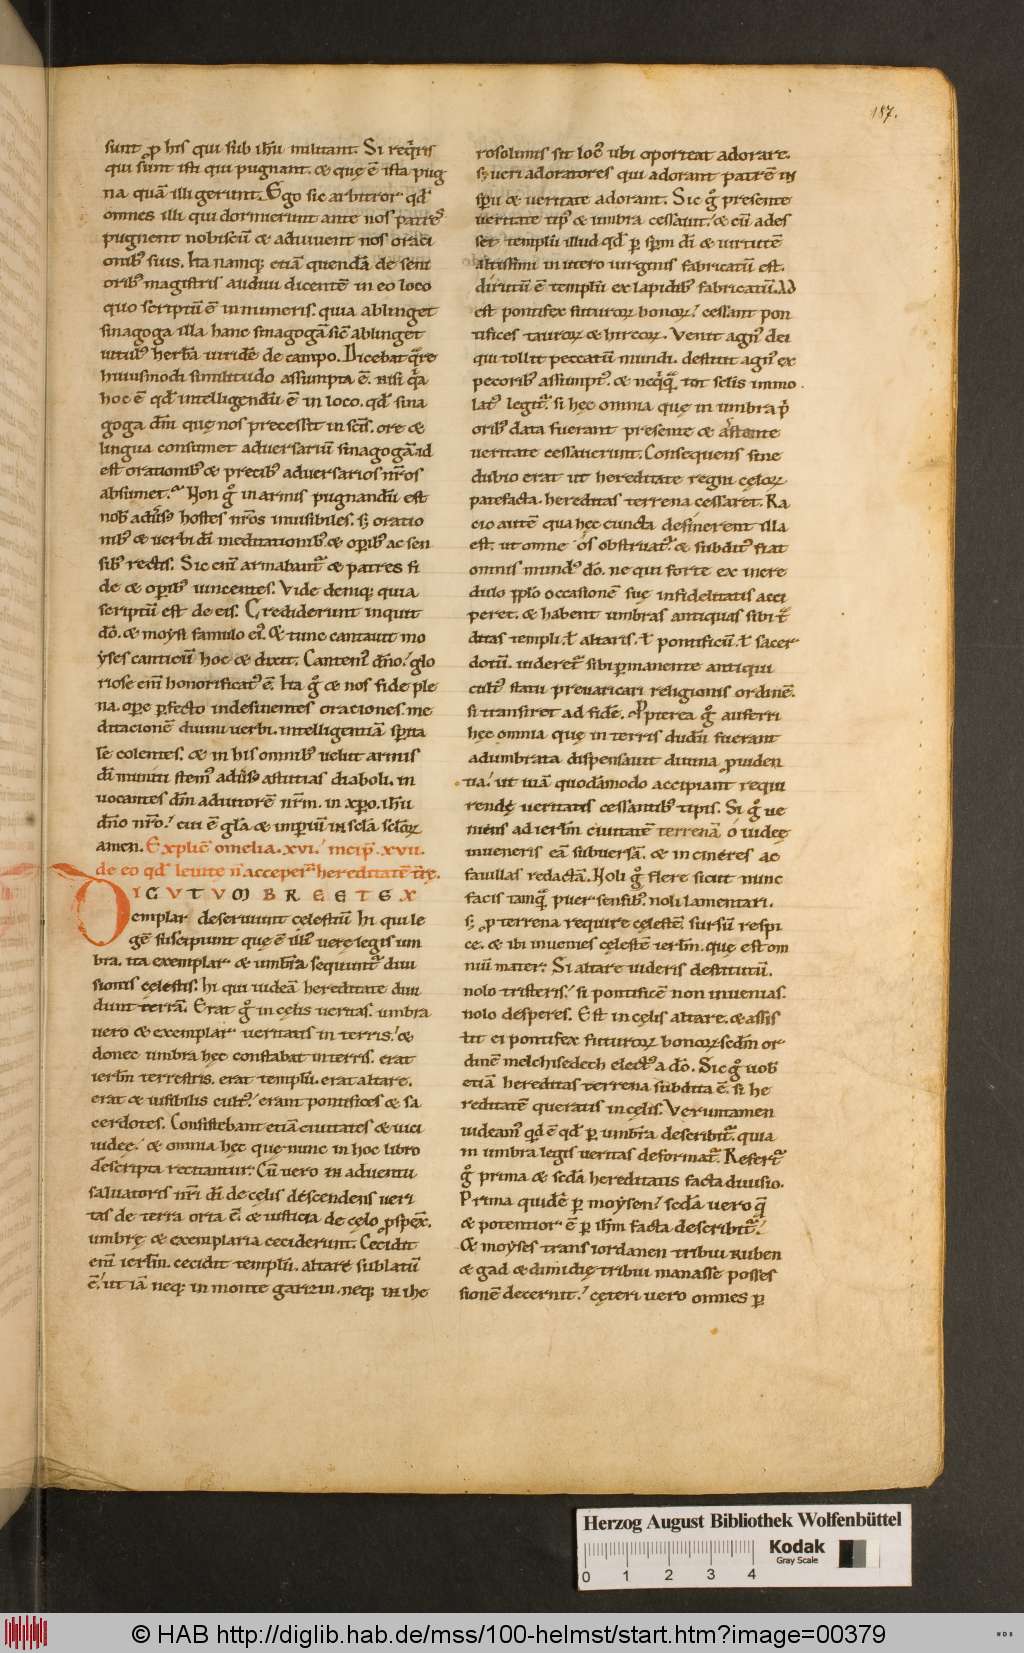 187.
sunt ꝓ his qui sub ihū militant. Si reqͥris
qui sunt isti qui pugnant. & quę ē ista pug
na. quā illi gerunt. Ego sic arbitror qđ
omnes illi qui dormierunt ante nos patresͥ
pugnent nobiscū & adiuuent nos orati
onibꝰ suis. Ita namq; etiā quendā de seni
oribꝰ magistris audiui dicentē in eo loco
quo scriptū ē in numeris. quia ablinget
sinagoga illa hanc sinagogā sic̄ ablinget
uitulꝰ herbā uiridē de campo. Dicebat qͣre
huiusmodi similitudo assumpta ē. nisi qͥa
hoc ē qđ intelligendū ē in loco. qđ sina
goga dn̄i quę nos precessit in scīs. ore &
lingua consumet aduersariū sinagogā. id
est orationibꝰ & precibꝰ aduersarios nr̄os
absumet. Non gͦ in armis pugnandū est
nob̄ aduͥsus hostes nr̄os inuisibiles. s; oratio
nibꝰ & uerbi dī meditationibꝰ. & opibꝰ ac sen
sibꝰ rectis. Sic enī armabantᷣ & patres fi
de & opibꝰ uincentes. Vide deniq; quia
scriptū est de eis. Crediderunt inquit
dō. & moysi famulo eiꝰ. & tunc cantauit mo
yses canticū hoc & dixit. Cantemꝰ dn̄o. glo
riose enī honorificatꝰ ē. Ita gͦ & nos fide ple
na. ope ꝑfecto indesinentes orationes. me
ditationē diuini uerbi. intelligentiā spīta
lē colentes. & in his omnibꝰ uelut armis
dī muniti stemꝰ aduͥsus astutias diaboli. in
uocantes dn̄m adiutorē nr̄m. in xp̄o. ihū
dn̄o nr̄o. cui ē gl̄a & impiū in scl̄a sclōꝝ
amen. Explic̄ omelia .xvi. incip̄ .xvii.
de eo qđ leuite n̄ acceperᷣ hereditatē tr̄ę.
DICVTVM BREETEX
emplar deseruiunt cęlestiū hi qui le
gē suscipiunt quę ē ubꝰ uerę legis um
bra. ita exemplar & umbrā sequuntᷣ diui
sionis cęlestis. hi qui iudeā hereditate diui
dunt terrā. Erat gͦ in cęlis ueritas. umbra
uero & exemplar ueritatis in terris. &
donec umbra hęc constabat in terris. erat
ierl̄m terrestris. erat templū. erat altare.
erat & uisibilis cultꝰ. erant pontifices & sa
cerdotes. Consistebant etiā ciuitates & uici
iudeę. & omnia hęc quę nunc in hoc libro
descripta recitantur. Cū uero in aduentu
saluatoris nr̄i dī de cęlis descendens ueri
tas de terra orta ē. & iusticia de cęlo ꝓspex̄.
umbrę & exemplaria ceciderunt. Cecidit
enī ierl̄m. cecidit templū. altare sublatū
ē. ut iā neq; in monte garizin. neq; in ihe
rosolimis sit locꝰ ubi oporteat adorare.
s; ueri adoratores qui adorant patrē in
spū & ueritate adorant. Sic gͦ presente
ueritate tipꝰ & umbra cessauit. & cū ades
set templū illud qđ ꝑ spm̄ dī & uirtutē
altissimi in utero uirginis fabricatū est.
dirutū ē templū ex lapidibꝰ fabricatū. Ad
est pontifex futuroꝝ bonoꝝ. cessant pon
tifices tauroꝝ & hircoꝝ. Venit agnꝰ dei
qui tollit peccatū mundi. destitit agnꝰ ex
pecoribꝰ assumptꝰ. & neqͥqͣ tot sclis immo
latꝰ legitᷣ. si hęc omnia quę in umbra pͥ
oribꝰ data fuerant presente & astante
ueritate cessauerunt. Consequens sine
dubio erat ut hereditate regni cęloꝝ
patefacta. hereditas terrena cessaret. Ra
cio autē qua hęc cuncta desinerent illa
est. ut omne os obstruatᷣ. & subditꝰ fiat
omnis mundꝰ dō. ne qui forte ex incre
dulo pplo occasionē suę infidelitatis acci
peret. & habent umbras antiquas sibi tͣ
ditas templi. ł altaris. ł pontificū. ł sacer
dotū. uideretᷣ sibi ꝑmanente antiqui
cultꝰ statu preuaricari religionis ordinē.
si transiret ad fidē. Ꝓpterea gͦ auferri
hęc omnia quę in terris dudū fuerant
adumbrata dispensauit diuina ꝓuiden
tia. ut uiā quodāmodo accipiant requi
rendę ueritatis cessantibꝰ tipis. Si gͦ ue
niens ad ierl̄m ciuitatē terrenā o iudeę
inueneris eā subuersā. & in cineres ac
fauillas redactā. Noli gͦ flere sicut nunc
facis tamqͣ puer sensibꝰ. noli lamentari.
s; ꝓ terrena require cęlestē. sursū respi
ce. & ibi inuenies cęlestē ierl̄m. quę est om
niū mater. Si altare uideris destitutū.
nolo tristeris. si pontificē non inuenias.
nolo desperes. Est in cęlis altare. & assis
tit ei pontifex futuroꝝ bonoꝝ. scdm̄ or
dinē melchisedech electꝰ a dō. Sic gͦ uob̄
etiā hereditas terrena subdita ē. si he
reditatē queratis in cęlis. Veruntamen
uideamꝰ quid ē qđ ꝑ umbrā describitᷣ. quia
in umbra legis ueritas deformatᷣ. Refertᷣ
gͦ prima & scdā hereditatis facta diuisio.
Prima quidē ꝑ moysen. scdā uero qͣ
& potentior ē ꝑ ihm̄ facta describitᷣ.
& moyses trans iordanen tribui ruben
& gad & dimidię tribui manasse posses
sionē decernit. cęteri uero omnes ꝑ
Herzog August Bibliothek Wolfenbüttel
Kodak
Gray Scale
0 1 2 3 4
© HAB http://diglib.hab.de/mss/100-helmst/start.htm?image=00379